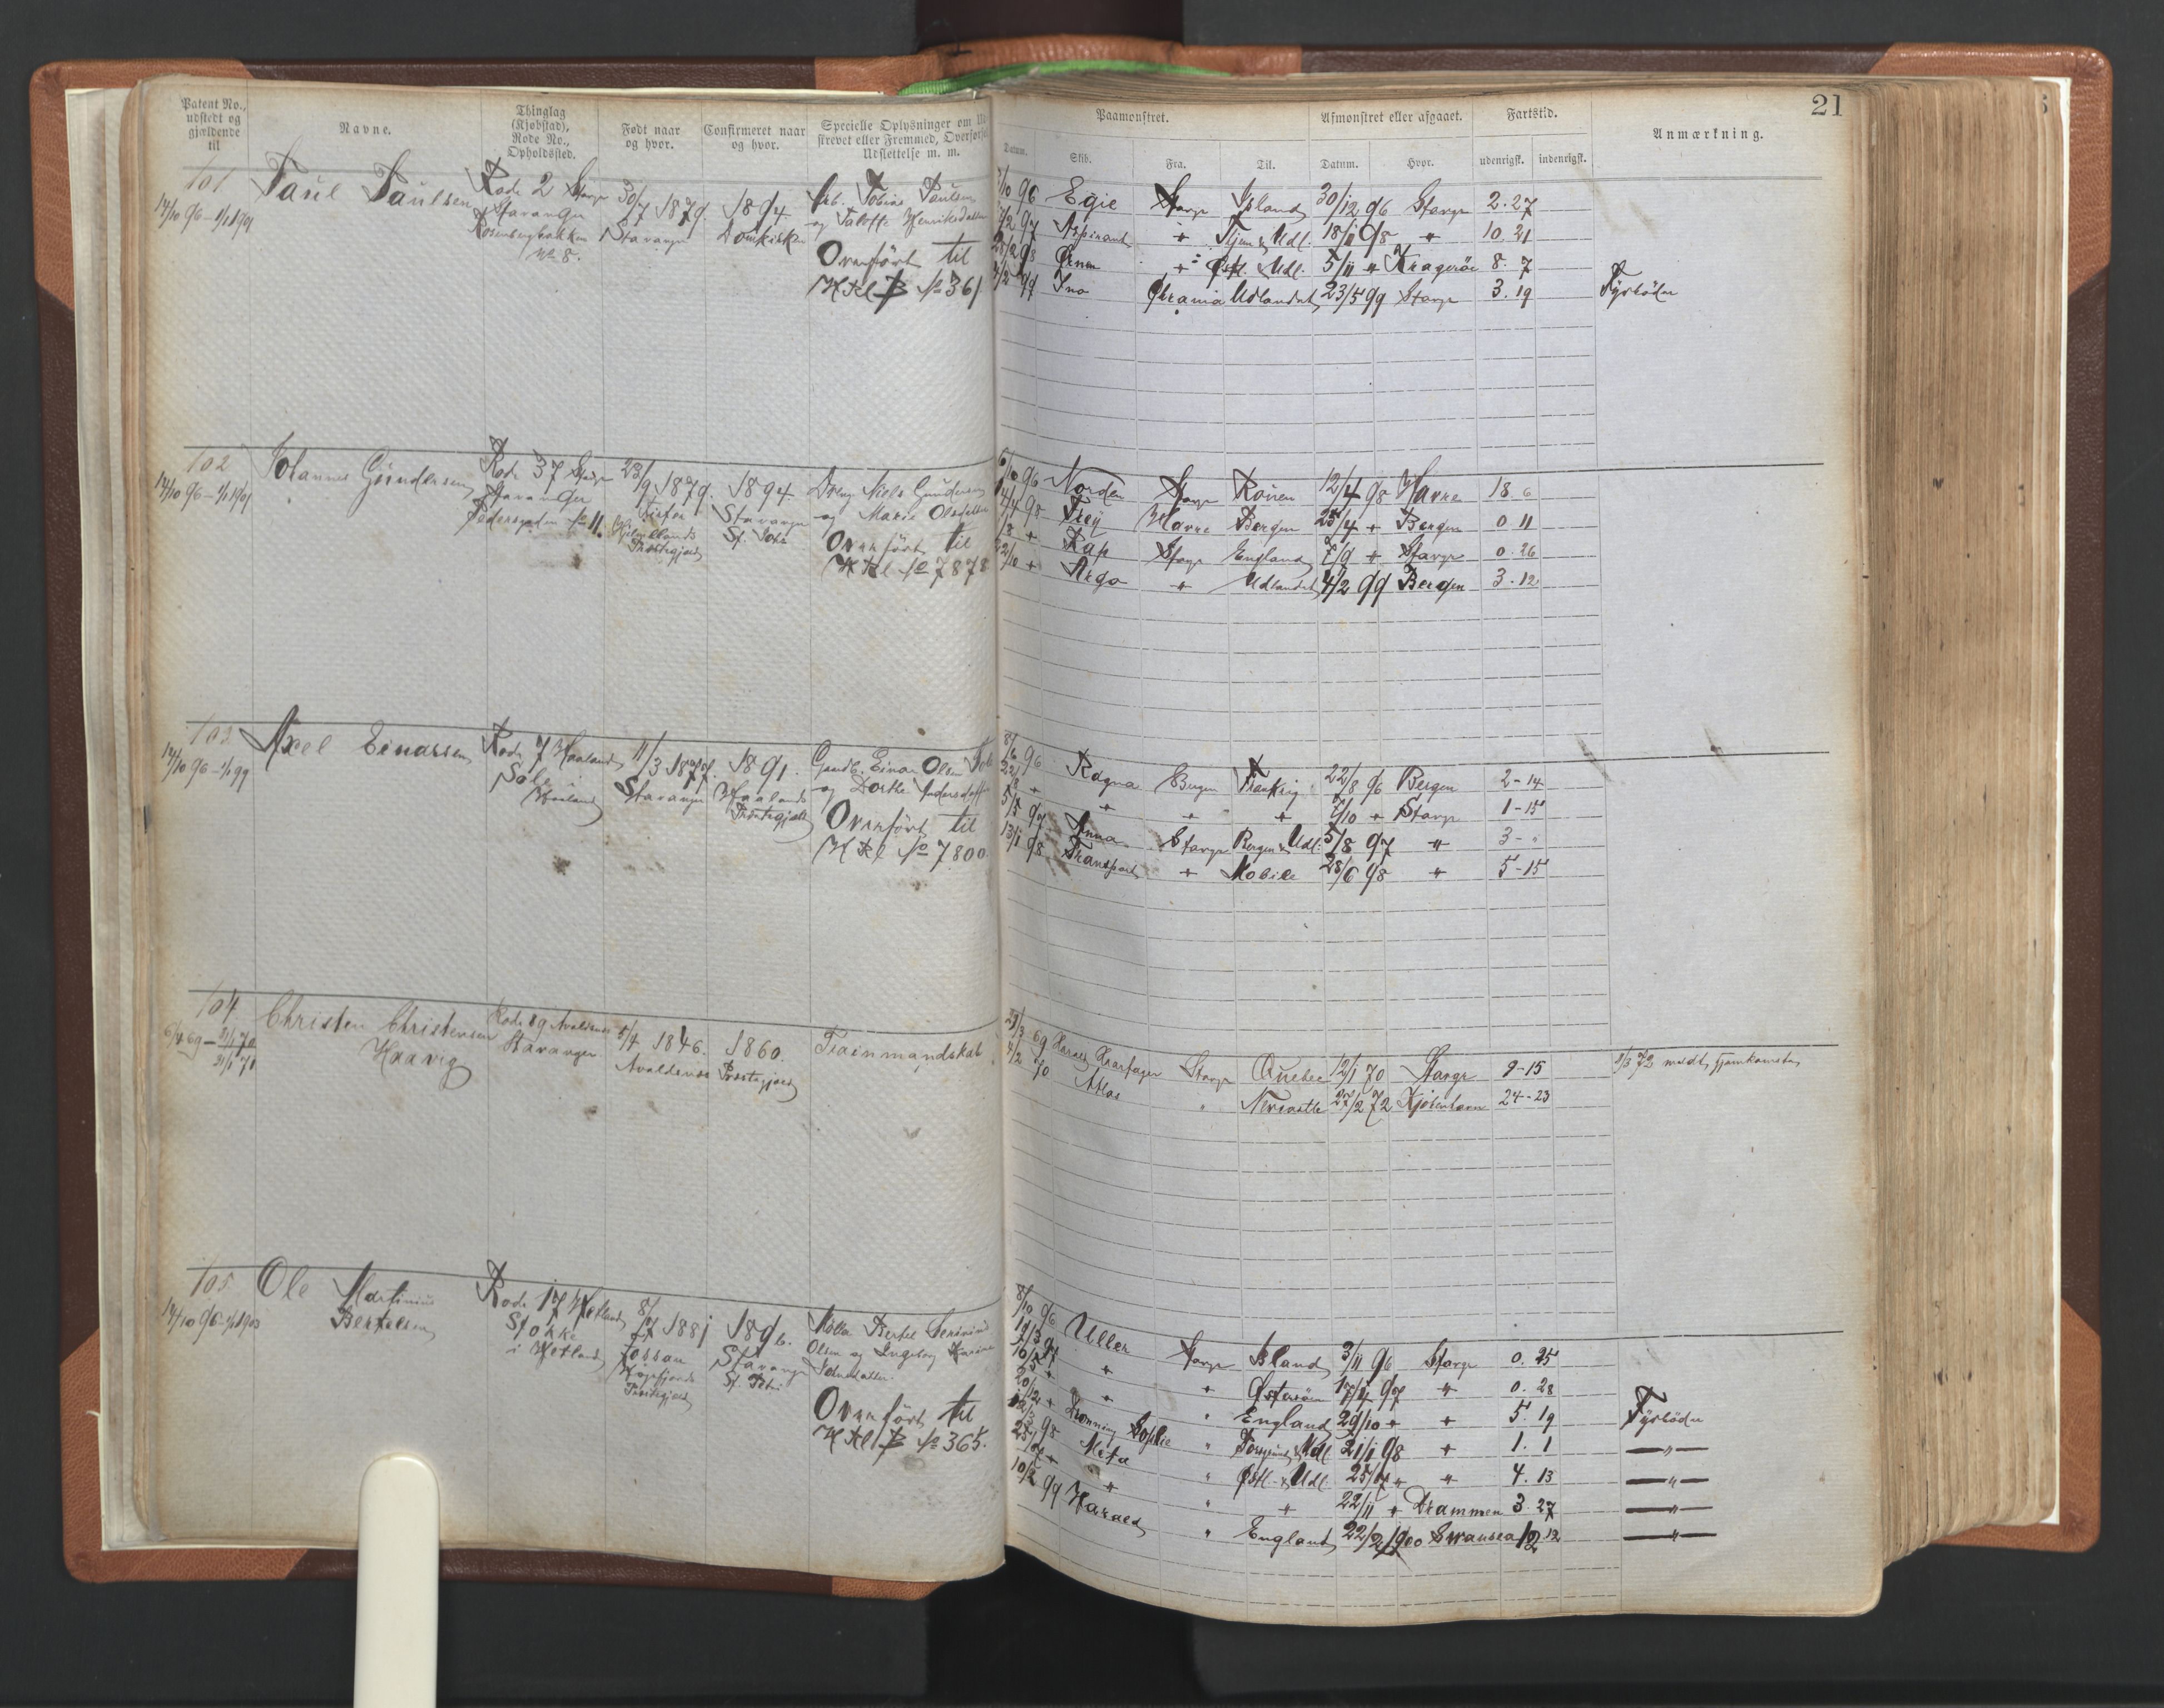 21
Patent No., udstedt og gjældende til
Navne.
Thinglag (Kjøbstad), Rode No., Opholdssted.
Født naar og hvor.
Confirmeret naar og hvor.
Specielle Oplysninger om
Udslettelse m. m.
Paamønstret.
Afmønstret eller afgaaet.
Fartstid.
Anmærkning.
Datum.
Skib.
Fra.
Til.
Datum.
Hvor.
udenrigsk.
indenrigsk.
101
14/10 96 - 1/1 1901
Paul Paulsen
Rode 2 Stavgr
Stavanger
Rosenbergbakken
No 8.
30/7 1879.
Stavanger
1894.
Domkirken
Arb. Tobias Paulsen
og Taletta Henriksdatter
Overført til
H Rl B No 361
/10 96 Egie Stavgr Island 30/12 96 Stavgr 2. 27
/2 97 Aspirant " Tjem & Udl. 18/1 98 " 10. 21
25/2 98 Ørnen " Østl. & Udl. 5/11 " Kragerøe 8. 7
4/2 99 Ino Chrania Udlandet 23/5 99 Stavgr 3. 19 Fyrbøder
102
14/10 96 - 1/1 1901
Johannes Gundersen
Rode 37 Stavgr
Stavanger
Pedersgaden No 11.
23/9 1879.
Hjelmelands
Præstegjæld
1894.
Stavanger
St. Petri
Niels Gundersen
og Marie Olsdatter
Overført til
H Rl No 7878
/10 96 Norden Stavgr Rouen 12/4 98 Havre 18. 6
14/4 98 Frey Havre Bergen 25/4 " Bergen 0 11
" Rap Stavgr England 7/9 " Stavgr 0. 26
22/10 " Argo " Udlandet 4/2 99 Bergen 3. 12
103
14/10 96 - 1/1 99
Axel Einarsen
Rode 7 Haaland
Sole
Haaland
11/3 1877.
Stavanger
1891.
Haalands
Præstegjæld
Gaardb. Einar Olsen Sole
og Dorthe Andersdatter
Overført til
H Rl No 7800.
8/6 96 Ragna Bergen Frankrig 22/8 96 Bergen 2 - 14
22/8 " " " " 7/10 " Stavgr 1 - 15
5/5 97 Anna Stavgr Bergen & Udl. 5/8 97 " 3 - "
13/1 98 Transport " Mobile 28/6 98 " 5 - 15
104
6/4 69 - 31/1 70
31/1 71
Christen Christensen
Haavig
Rode 89 Avaldsnes
Stavanger
5/4 1846.
Avaldsnes
1860.
Præstegjæld
Trainmandskab
31/3 69 Harald Haarfager Stavgr Quebec 12/1 70 Stavgr 9 - 15 8/3 72 meldt hjemkomsten
4/2 70 Atlas " Newcastle 27/2 72 Kjøbenhavn 24 - 23
105
14/10 96 - 1/1 1903
Ole Martinius
Bertelsen
Rode 17 Hetland
Stokke
i Hetland
8/7 1881
Fossan
Høgsfjords
Præstegjæld
1896.
Stavanger
St. Petri
Møller Bertel Severin
Olsen og Ingeborg Karine
Overført til
H Rl B No 365.
8/10 96 Uller Stavgr Island 3/11 96 Stavgr 0. 25
/3 97 " " Østersøen 17/4 97 " 0. 28
16/5 " " " England 29/10 " " 5. 19 Fyrbøder
20/12 " Dronning Sophie " Porsgrund & Udl. 21/1 98 " 1. 1 — " —
12/3 98 Meta " Østl. & Udl. 25/7 " " 4. 13 — " —
25/7 " " " " 22/11 " Drammen 3. 27 — " —
10/2 99 Harald " England 22/2 1900 Swansea 12. 12 — " —